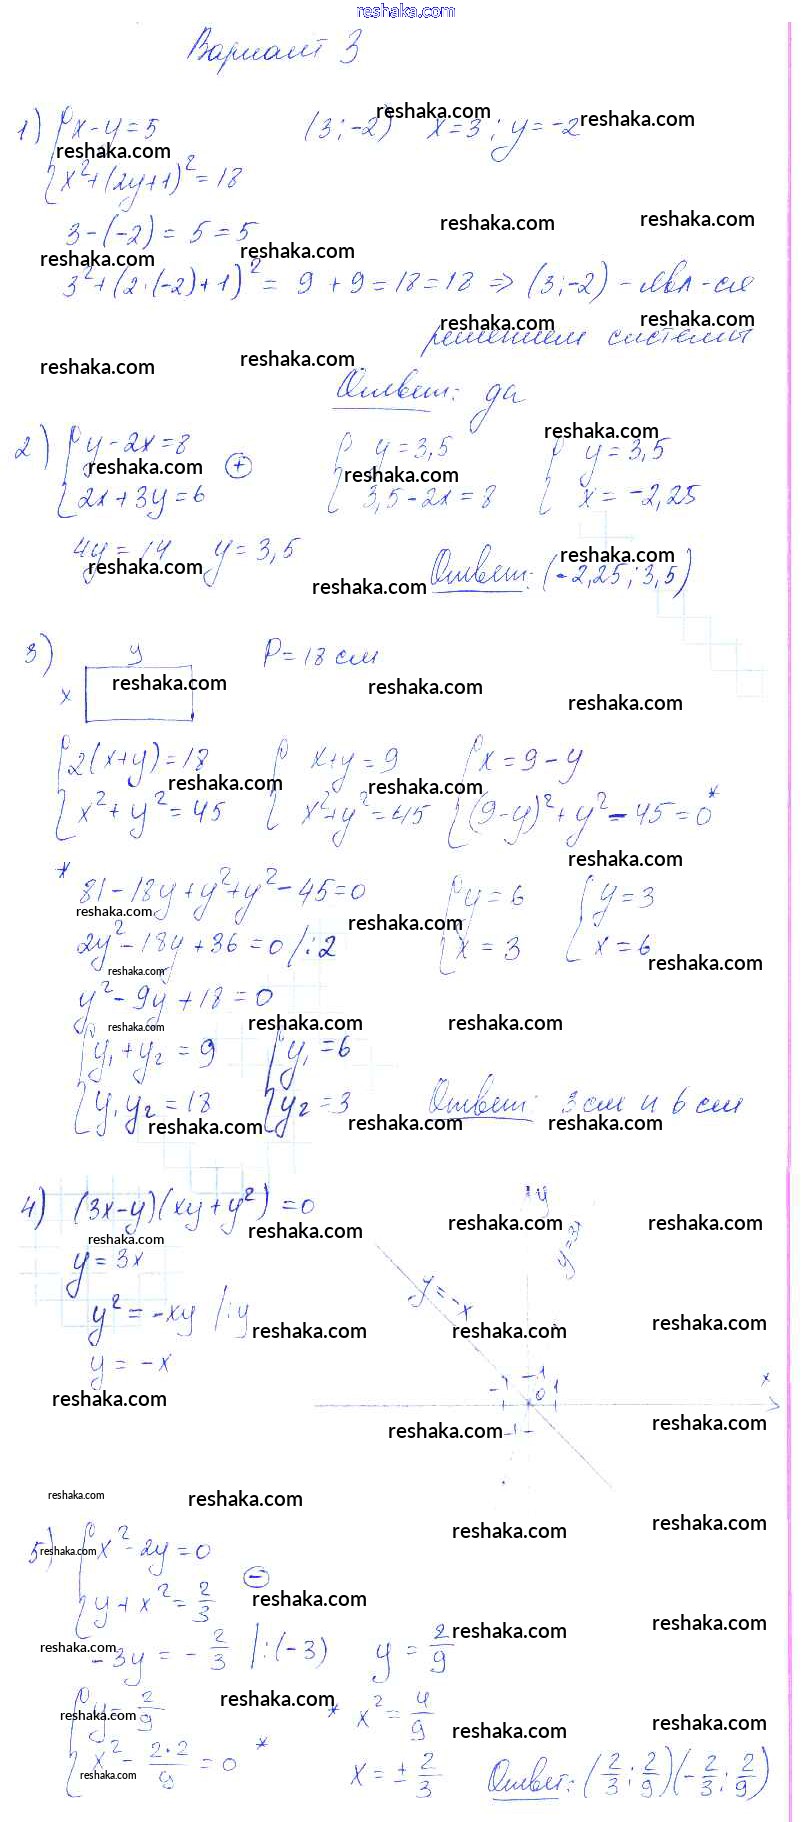 reshaka.com
Вариант 3
1) { x-y=5
(3;-2) x=3; y=-2
x²+(2y+1)²=18
3-(-2)=5=5
3²+(2·(-2)+1)²= 9+9=18=18 => (3;-2) - явл-ся
решением системы
Ответ: да
2) { y-2x=8
2x+3y=6 ⊕
{ y=3,5
3,5-2x=8
{ y=3,5
x=-2,25
4y=14 y=3,5
Ответ: (-2,25; 3,5)
3) y
x
P=18 см
{ 2(x+y)=18
x²+y²=45
{ x+y=9
x²+y²=45
{ x=9-y
(9-y)²+y²-45=0 *
* 81-18y+y²+y²-45=0
2y²-18y+36=0 /:2
y²-9y+18=0
{ y₁+y₂=9
y₁y₂=18
{ y₁=6
y₂=3
{ y=6
x=3
{ y=3
x=6
Ответ: 3 см и 6 см
4) (3x-y)(xy+y²)=0
y=3x
y²=-xy /:y
y=-x
y
y=-x
x
-1 0 1
-1
5) { x²-2y=0
y+x²=2/3 ⊖
-3y=-2/3 |:(-3) y=2/9
{ y=2/9
x²-2·2/9=0 *
* x²=4/9
x=±2/3
Ответ: (2/3; 2/9)(-2/3; 2/9)